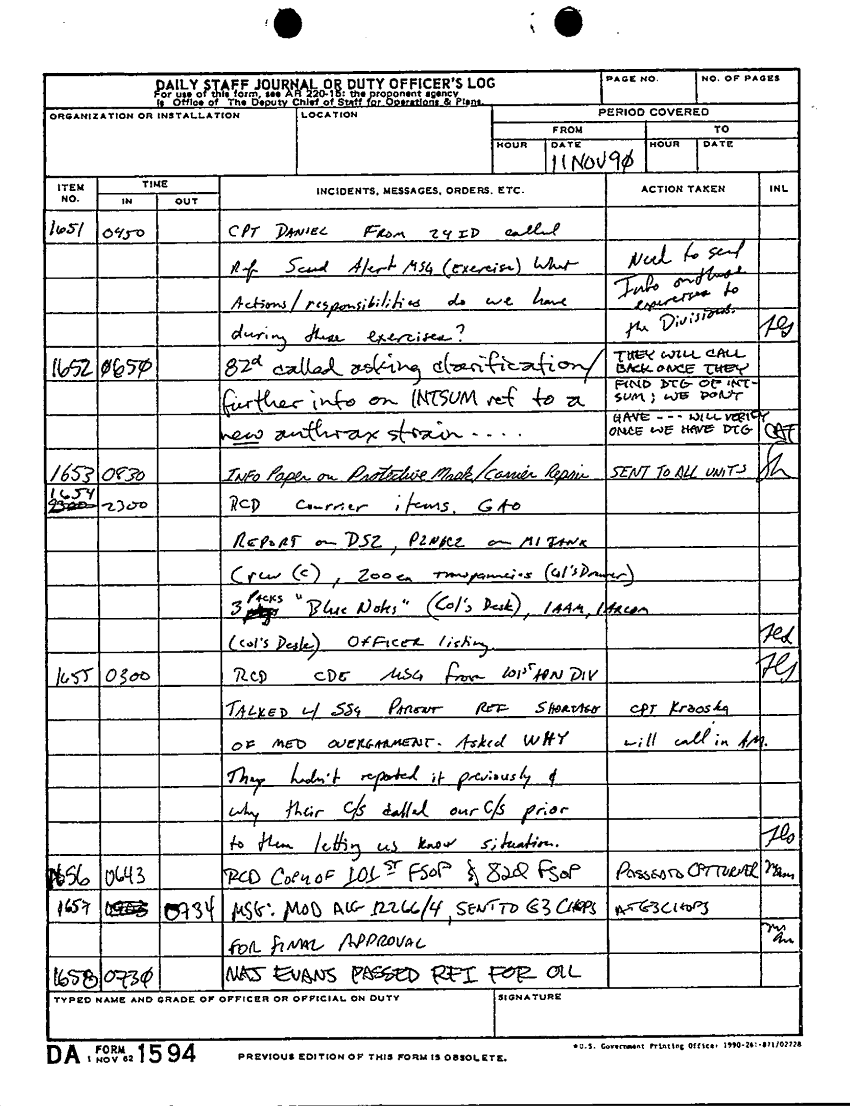 DAILY STAFF JOURNAL OR DUTY OFFICER'S LOG
For use of this form, see AR 220-15; the proponent agency
is Office of The Deputy Chief of Staff for Operations & Plans.
PAGE NO.
NO. OF PAGES
ORGANIZATION OR INSTALLATION
LOCATION
PERIOD COVERED
FROM
TO
HOUR
DATE
HOUR
DATE
11 NOV 90
ITEM NO.
TIME
IN
OUT
INCIDENTS, MESSAGES, ORDERS, ETC.
ACTION TAKEN
INL
1651 0450 CPT DANIEL FROM 24 ID called
Ref Scud Alert MSG (Exercise) What Need to send
Actions/responsibilities do we have Info on these exercises to
during these exercises? the Divisions.
1652 0650 82d called asking clarification/ THEY WILL CALL BACK ONCE THEY
further info on INTSUM ref to a FIND DTG OF INTSUM; WE DON'T
new anthrax strain .... HAVE --- WILL VERIFY ONCE WE HAVE DTG
1653 0830 INFO Paper on Protective Mask/Carrier Repair SENT TO ALL UNITS
1654 2300 RCD Courrier items. GAO
REPORT on DS2, on M1 TANK
Crew (C), 200 ea transparencies (Col's Drawer)
3 PACKS "Blue Notes" (Col's Desk), 1 AAM, 1 ARCOM
(Col's Desk) OFFICER listing
1655 0300 RCD CDE MSG from 101st ABN DIV
TALKED w/ SSG PARENT REF SHORTAGE CPT
OF MED OVERGARMENT. Asked WHY will call in AM.
They hadn't reported it previously &
why their C/S called our C/S prior
to them letting us know situation.
1656 0643 RCD COPY OF 101ST FSOP & 82d FSOP PASSED TO CPT TURNER
1657 0734 MSG: MOD AIG 12266/4, SENT TO G3 CHOPS AT G3 CHOPS
FOR FINAL APPROVAL
1658 0730 MAJ EVANS PASSED RFI FOR OIL
TYPED NAME AND GRADE OF OFFICER OR OFFICIAL ON DUTY
SIGNATURE
DA FORM 1 NOV 62 1594
PREVIOUS EDITION OF THIS FORM IS OBSOLETE.
*U.S. Government Printing Office: 1990-261-871/02728